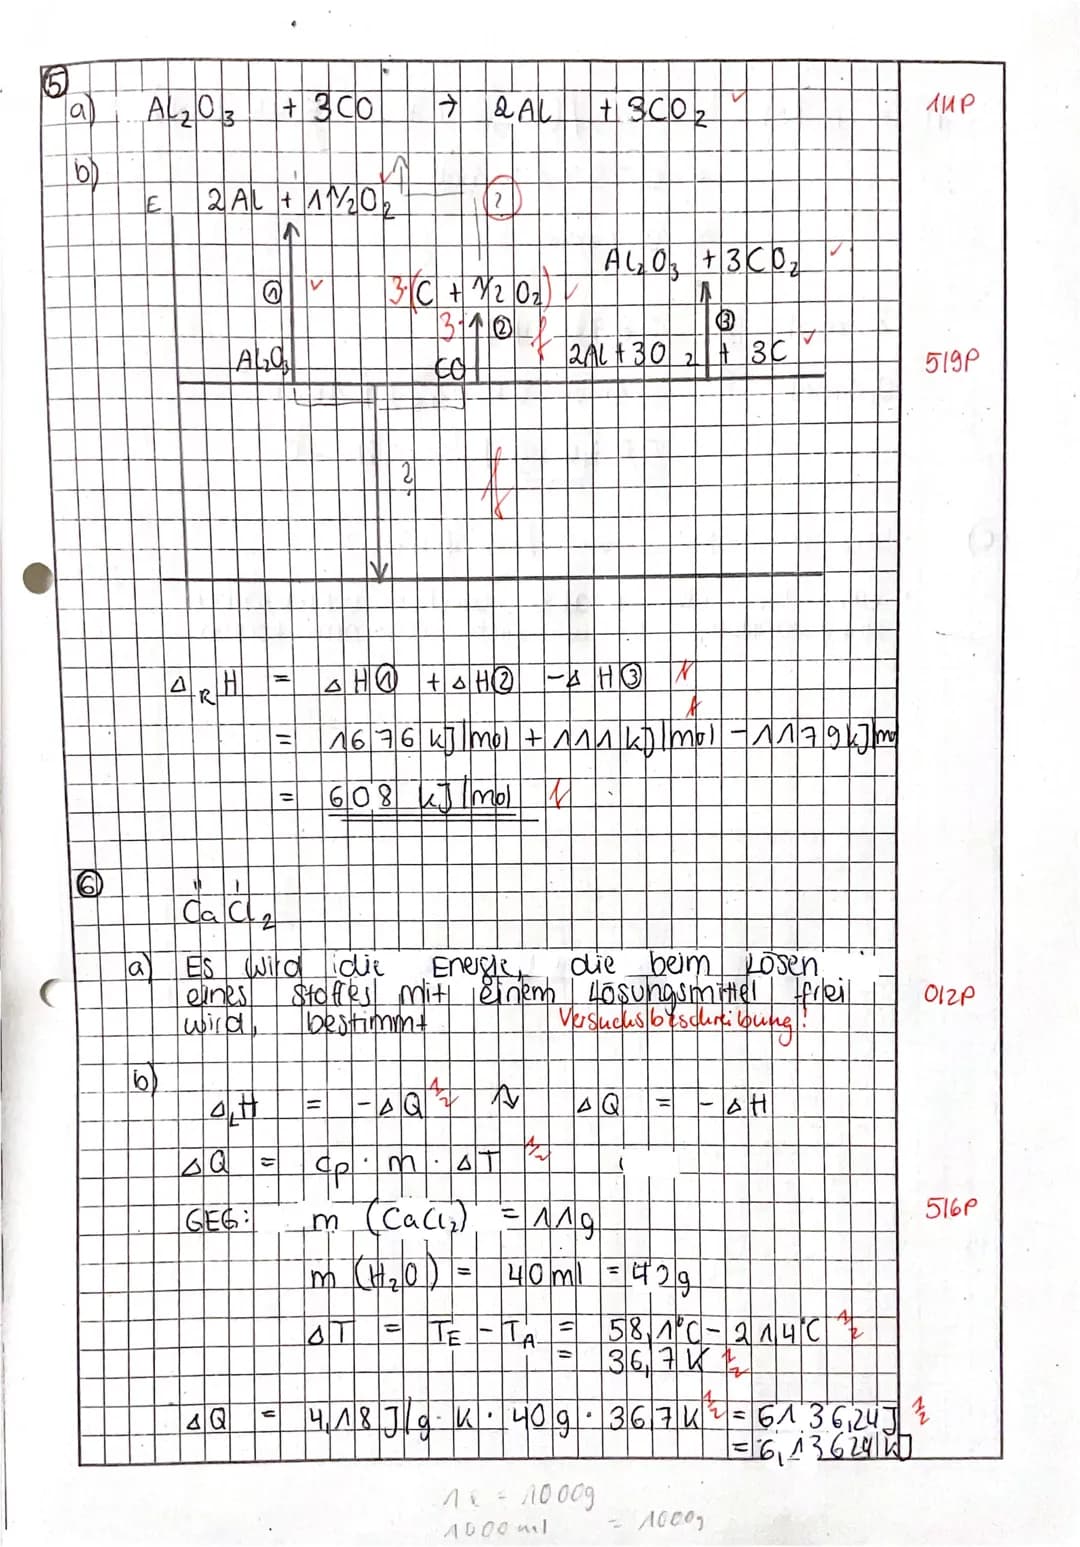 ⑤
a) Al₂O₃ + 3CO → 2Al + 3CO₂ ✓ 1/1P
b)
E 2Al + 1 1/2 O₂ ✓ ?
Al₂O₃ + 3CO₂ ✓
① ✓ 3·(C + 1/2 O₂) ✓
3· ② f ③
Al₂O₃ CO 2Al + 3O₂ + 3C ✓ 5/9P
? f
ΔRH = ΔH① + ΔH② - ΔH③ 1
= 1676 kJ/mol + 111 kJ/mol - 1179 kJ/mol 1
= 608 kJ/mol
⑥
II I
CaCl₂
a) Es wird die Energie, die beim Lösen
eines Stoffes mit einem Lösungsmittel frei 0/2P
wird, bestimmt Versuchsbeschreibung!
b)
ΔLH = -ΔQ 1/2 ΔQ = -ΔH
ΔQ = cp · m · ΔT 1/2
GEG: m (CaCl₂) = 11g 5/6P
m (H₂O) = 40ml = 40g
ΔT = TE - TA = 58,1°C - 21,4°C 1/2
= 36,7 K 1/2
ΔQ = 4,18 J/g·K · 40g · 36,7K 1/2 = 6136,24 J 1/2
= 6,13624 kJ
1l = 1000g
1000ml = 1000g